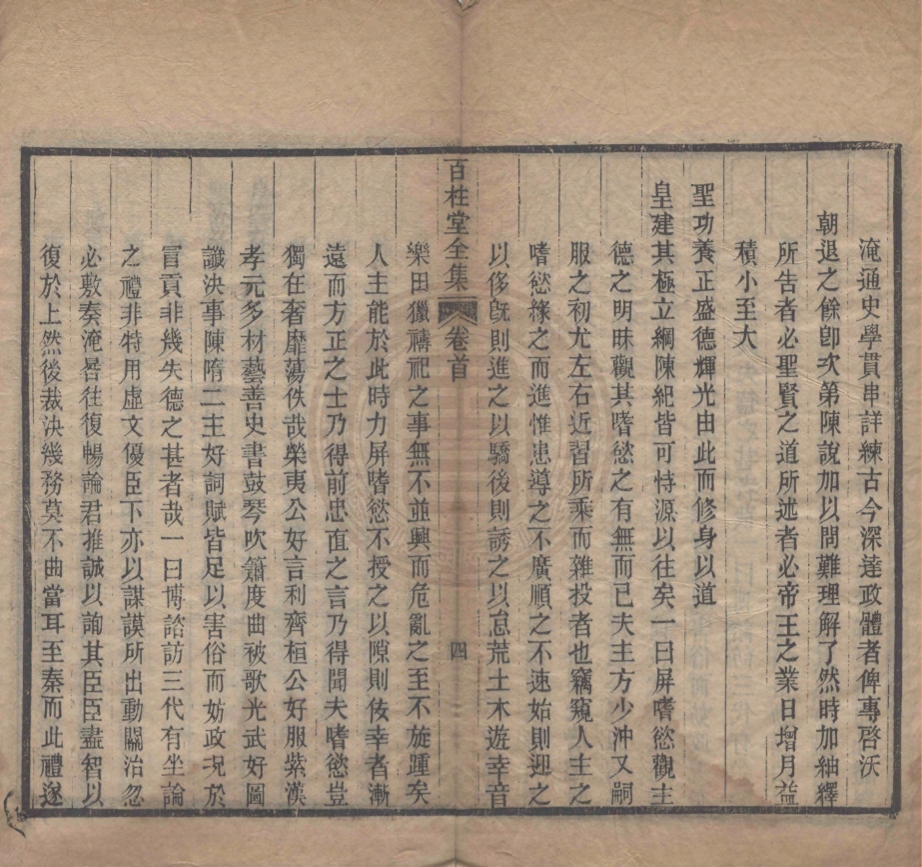 淹通史學貫串詳練古今深達政體者俾專啓沃
朝退之餘卽次第陳說加以問難理解了然時加紬繹
所告者必聖賢之道所述者必帝王之業日增月益
積小至大
聖功養正盛德輝光由此而修身以道
皇建其極立綱陳紀皆可恃源以往矣一曰屏嗜慾觀主
德之明昧觀其嗜慾之有無而已夫主方少沖又嗣
服之初尤左右近習所乘而雜投者也竊窺人主之
嗜慾緣之而進惟患導之不廣順之不速始則迎之
以侈旣則進之以驕後則誘之以怠荒土木遊幸音
百柱堂全集 卷首 四
樂田獵禱祀之事無不並興而危亂之至不旋踵矣
人主能於此時力屏嗜慾不授之以隙則佞幸者漸
遠而方正之士乃得前忠直之言乃得聞夫嗜慾豈
獨在奢靡蕩佚哉榮夷公好言利齊桓公好服紫漢
孝元多材藝善史書鼓琴吹簫度曲被歌光武好圖
讖決事陳隋二主好詞賦皆足以害俗而妨政况於
冒貢非幾失德之甚者哉一曰博諮訪三代有坐論
之禮非特用虛文優臣下亦以謀謨所出動關治忽
必敷奏淹晷往復暢論君推誠以詢其臣臣盡智以
復於上然後裁決幾務莫不曲當耳至秦而此禮遂